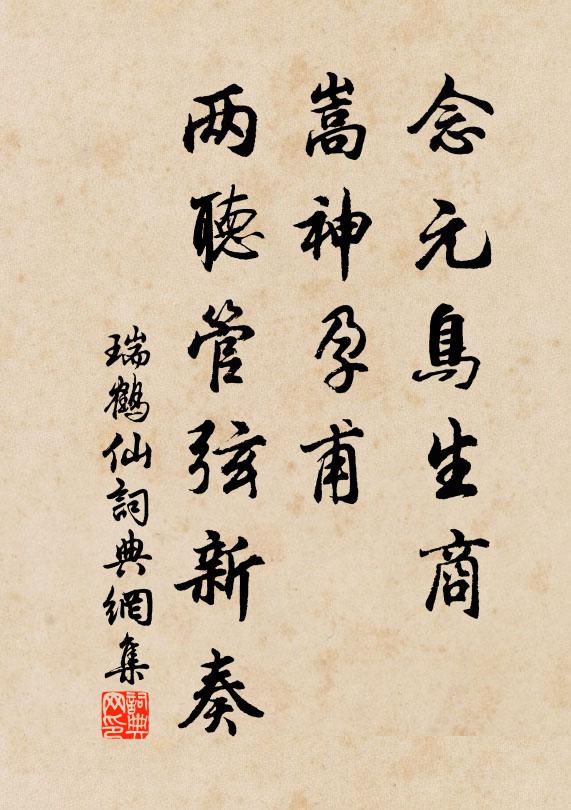 念元鳥生商
嵩神孕甫
两聽管弦新奏
瑞鶴仙詞典網集
詞典网印